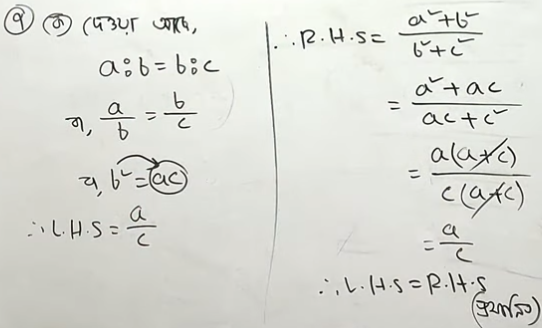 ৭ ক দেওয়া আছে,
a:b = b:c
বা, a/b = b/c
বা, b² = ac
∴ L.H.S = a/c
∴ R.H.S = (a²+b²)/(b²+c²)
= (a²+ac)/(ac+c²)
= a(a+c)/c(a+c)
= a/c
∴ L.H.S = R.H.S
(প্রমাণিত)